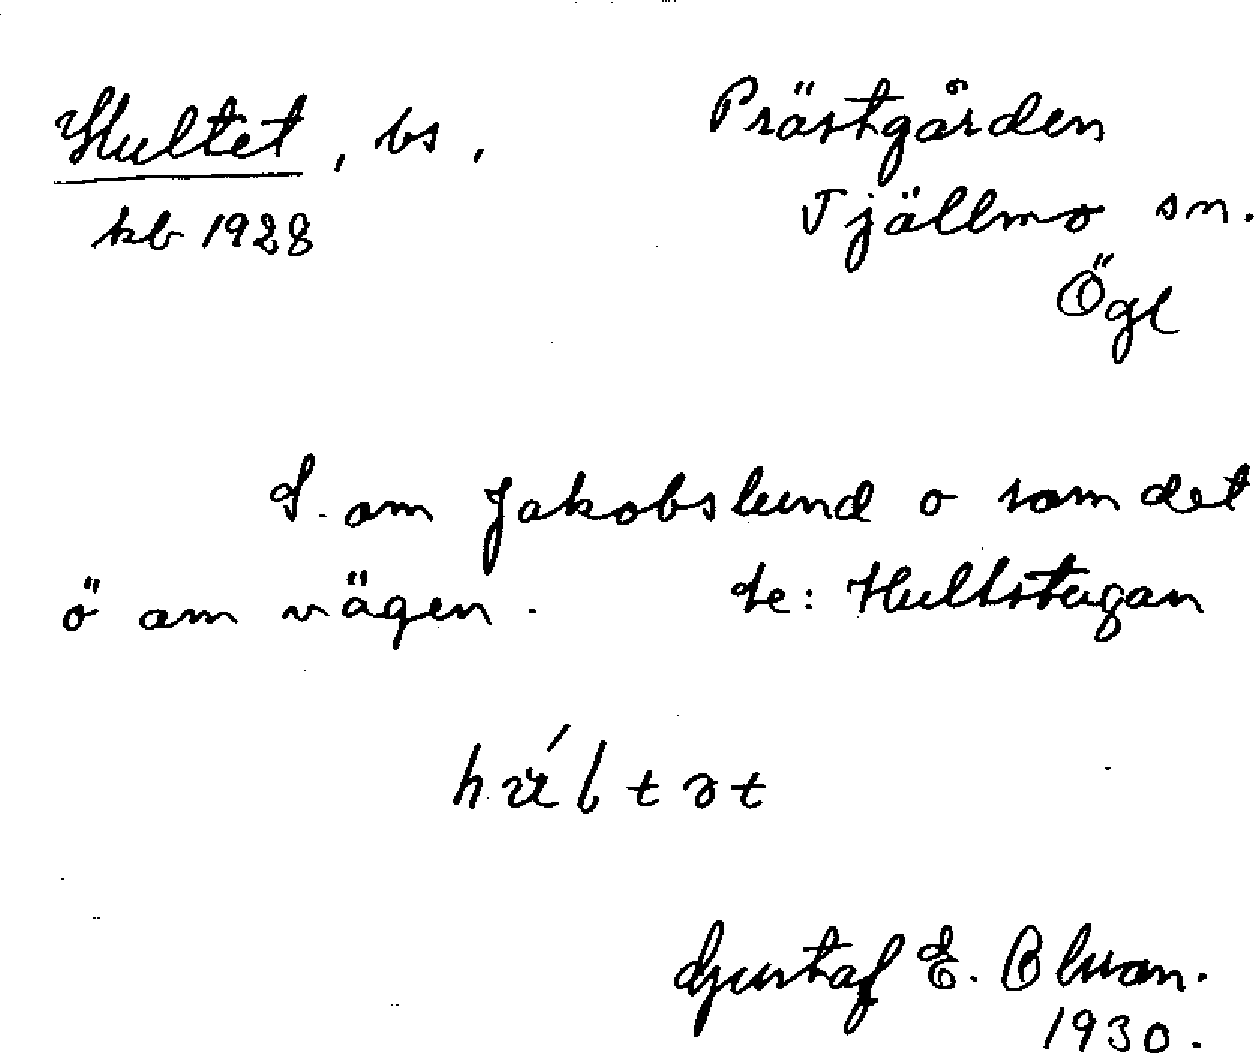 Hultet, bs.
Prästgården
kb 1928
Tjällmo sn.
Ögl
S. om Jakobslund o som det
ö om vägen. te: Hultstugan
Gustaf E. Bluan.
1930.